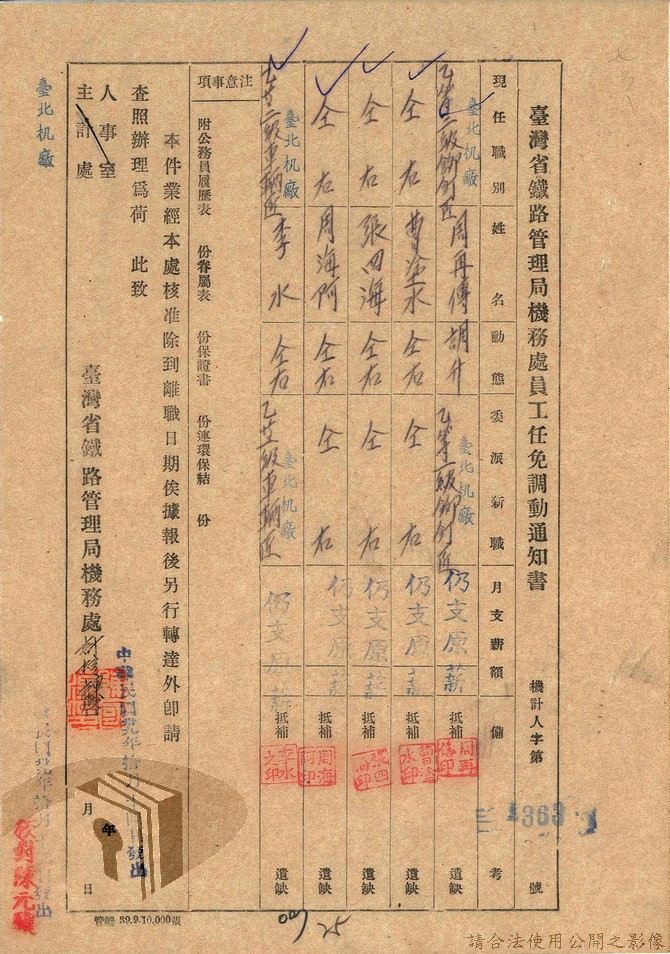 臺灣省鐵路管理局機務處員工任免調動通知書
機計人字第 4363 號
現任職別 姓名 動態 委派新職 月支薪額 備考
臺北机廠 周再傳 調升 臺北机廠 仍支原薪 抵補 遺缺
仝右 曹塗水 仝右 仝右 仍支原薪 抵補 遺缺
仝右 張四海 仝右 仝右 仍支原薪 抵補 遺缺
仝右 周海阿 仝右 仝右 仍支原薪 抵補 遺缺
臺北机廠 李水 仝右 臺北机廠 仍支原薪 抵補 遺缺
注意事項 附公務員履歷表 份眷屬表 份保證書 份連環保結 份
本件業經本處核准除到離職日期俟據報後另行轉達外卽請
查照辦理爲荷 此致
人事室
主計處
臺北机廠
臺灣省鐵路管理局機務處
中華民國卅九年拾月
發出
年
月 日
校對陳元
管纏 39.9.10,000張
25
請合法使用公開之影像